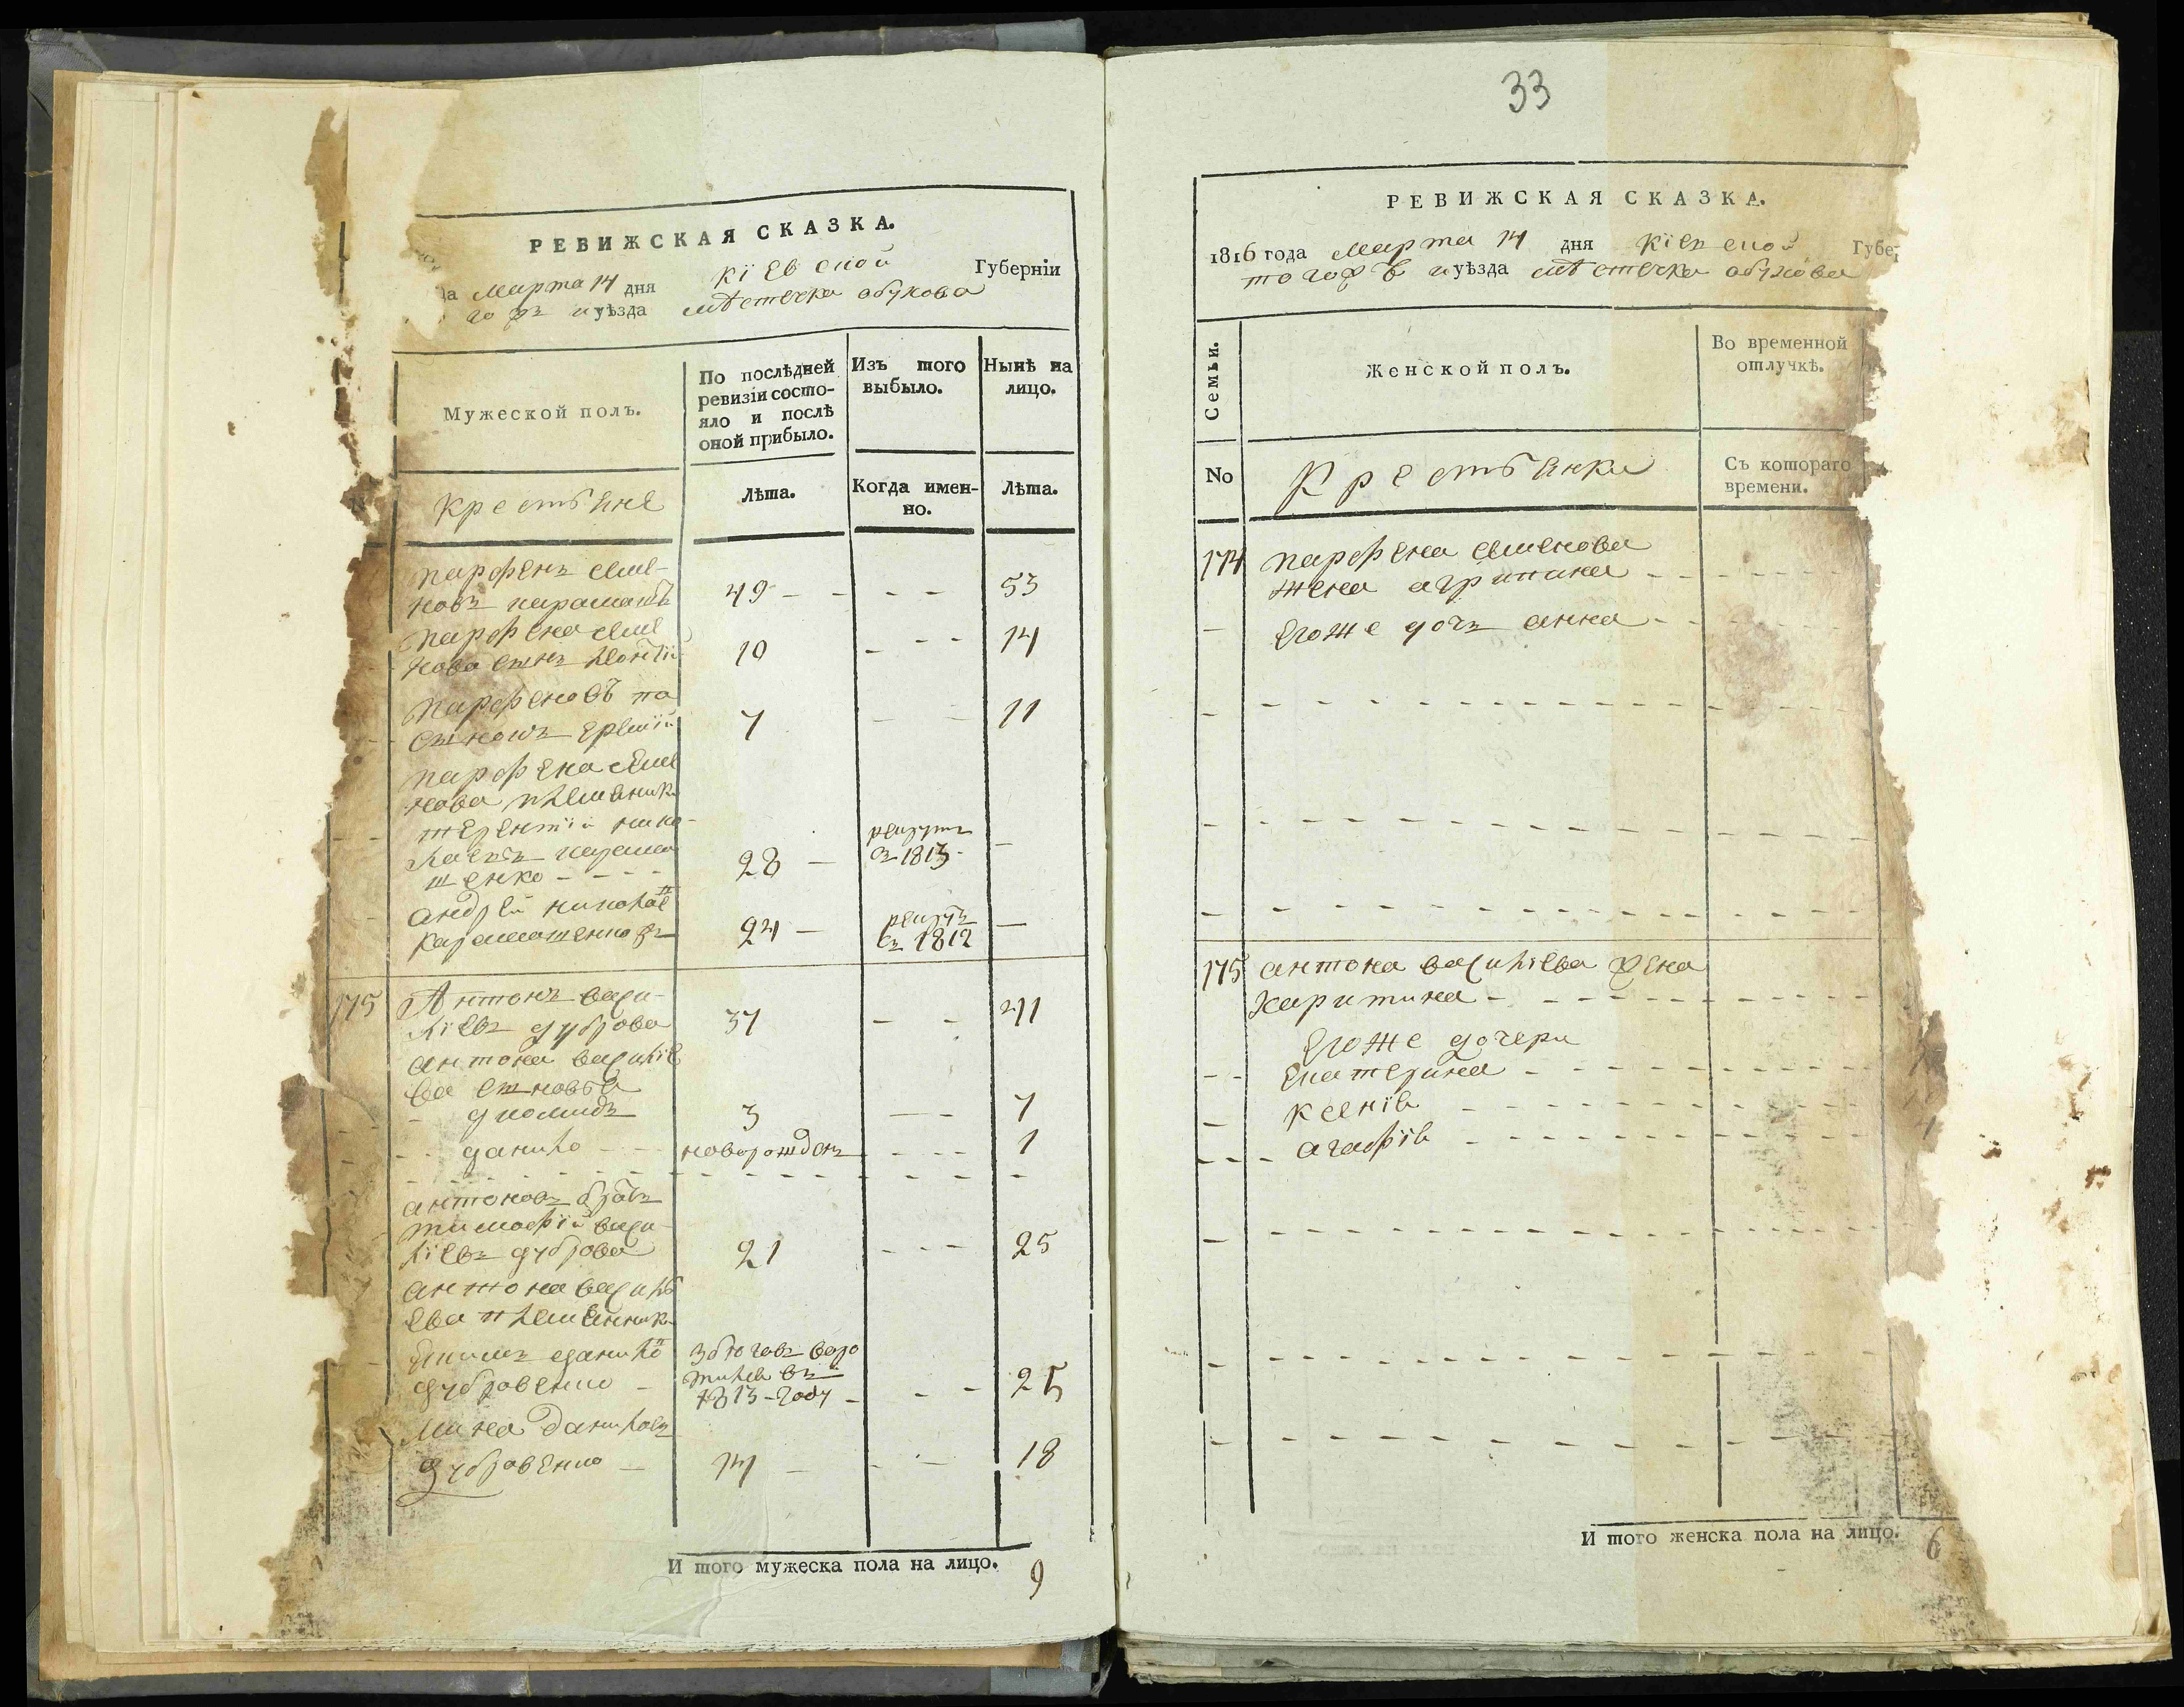 РЕВИЖСКАЯ СКАЗКА.
марта 14 дня кіевской Губерніи
тогож уѣзда мѣстечка обухова
Мужеской полъ.
По послѣдней
ревизіи состо-
яло и послѣ
оной прибыло.
Изъ того
выбыло.
Нынѣ на
лицо.
крестьяне
Лѣта.
Когда имен-
но.
Лѣта.
парфенъ семе-
новъ 49 53
парфена семе
нова сынъ 10 14
парфеновъ
7 11
парфена семе
нова племяник
терентій нико-
лаевъ карама
шенко 28 рекрутъ
въ 1813 -
андрей никола
карамашенко жъ 24 рекрут
въ 1812 -
175 Антонъ васи-
ліевъ дуброва 37 41
антона василіе
ва сыновья
диомидъ 3 7
данило новорожденъ 1
антоновъ братъ
тимофій васи-
ліевъ дуброва 21 25
антона василь
ева племянник
данило
дубровенко збеговъ воро
тился въ
1813-году 25
мина данилов
дубровенко 14 18
И того мужеска пола на лицо. 9
33
РЕВИЖСКАЯ СКАЗКА.
1816 года марта 14 дня кіевской Губе
тогожъ уѣзда мѣстечка обухова
Семьи.
Женской полъ.
Во временной
отлучкѣ.
No
Крестьянки
Съ котораго
времени.
174 парфена семенова
жена агрипина
егоже дочъ анна
175 антона василіева жена
харитина
егоже дочери
екатерина
ксенія
агафія
И того женска пола на лицо. 6